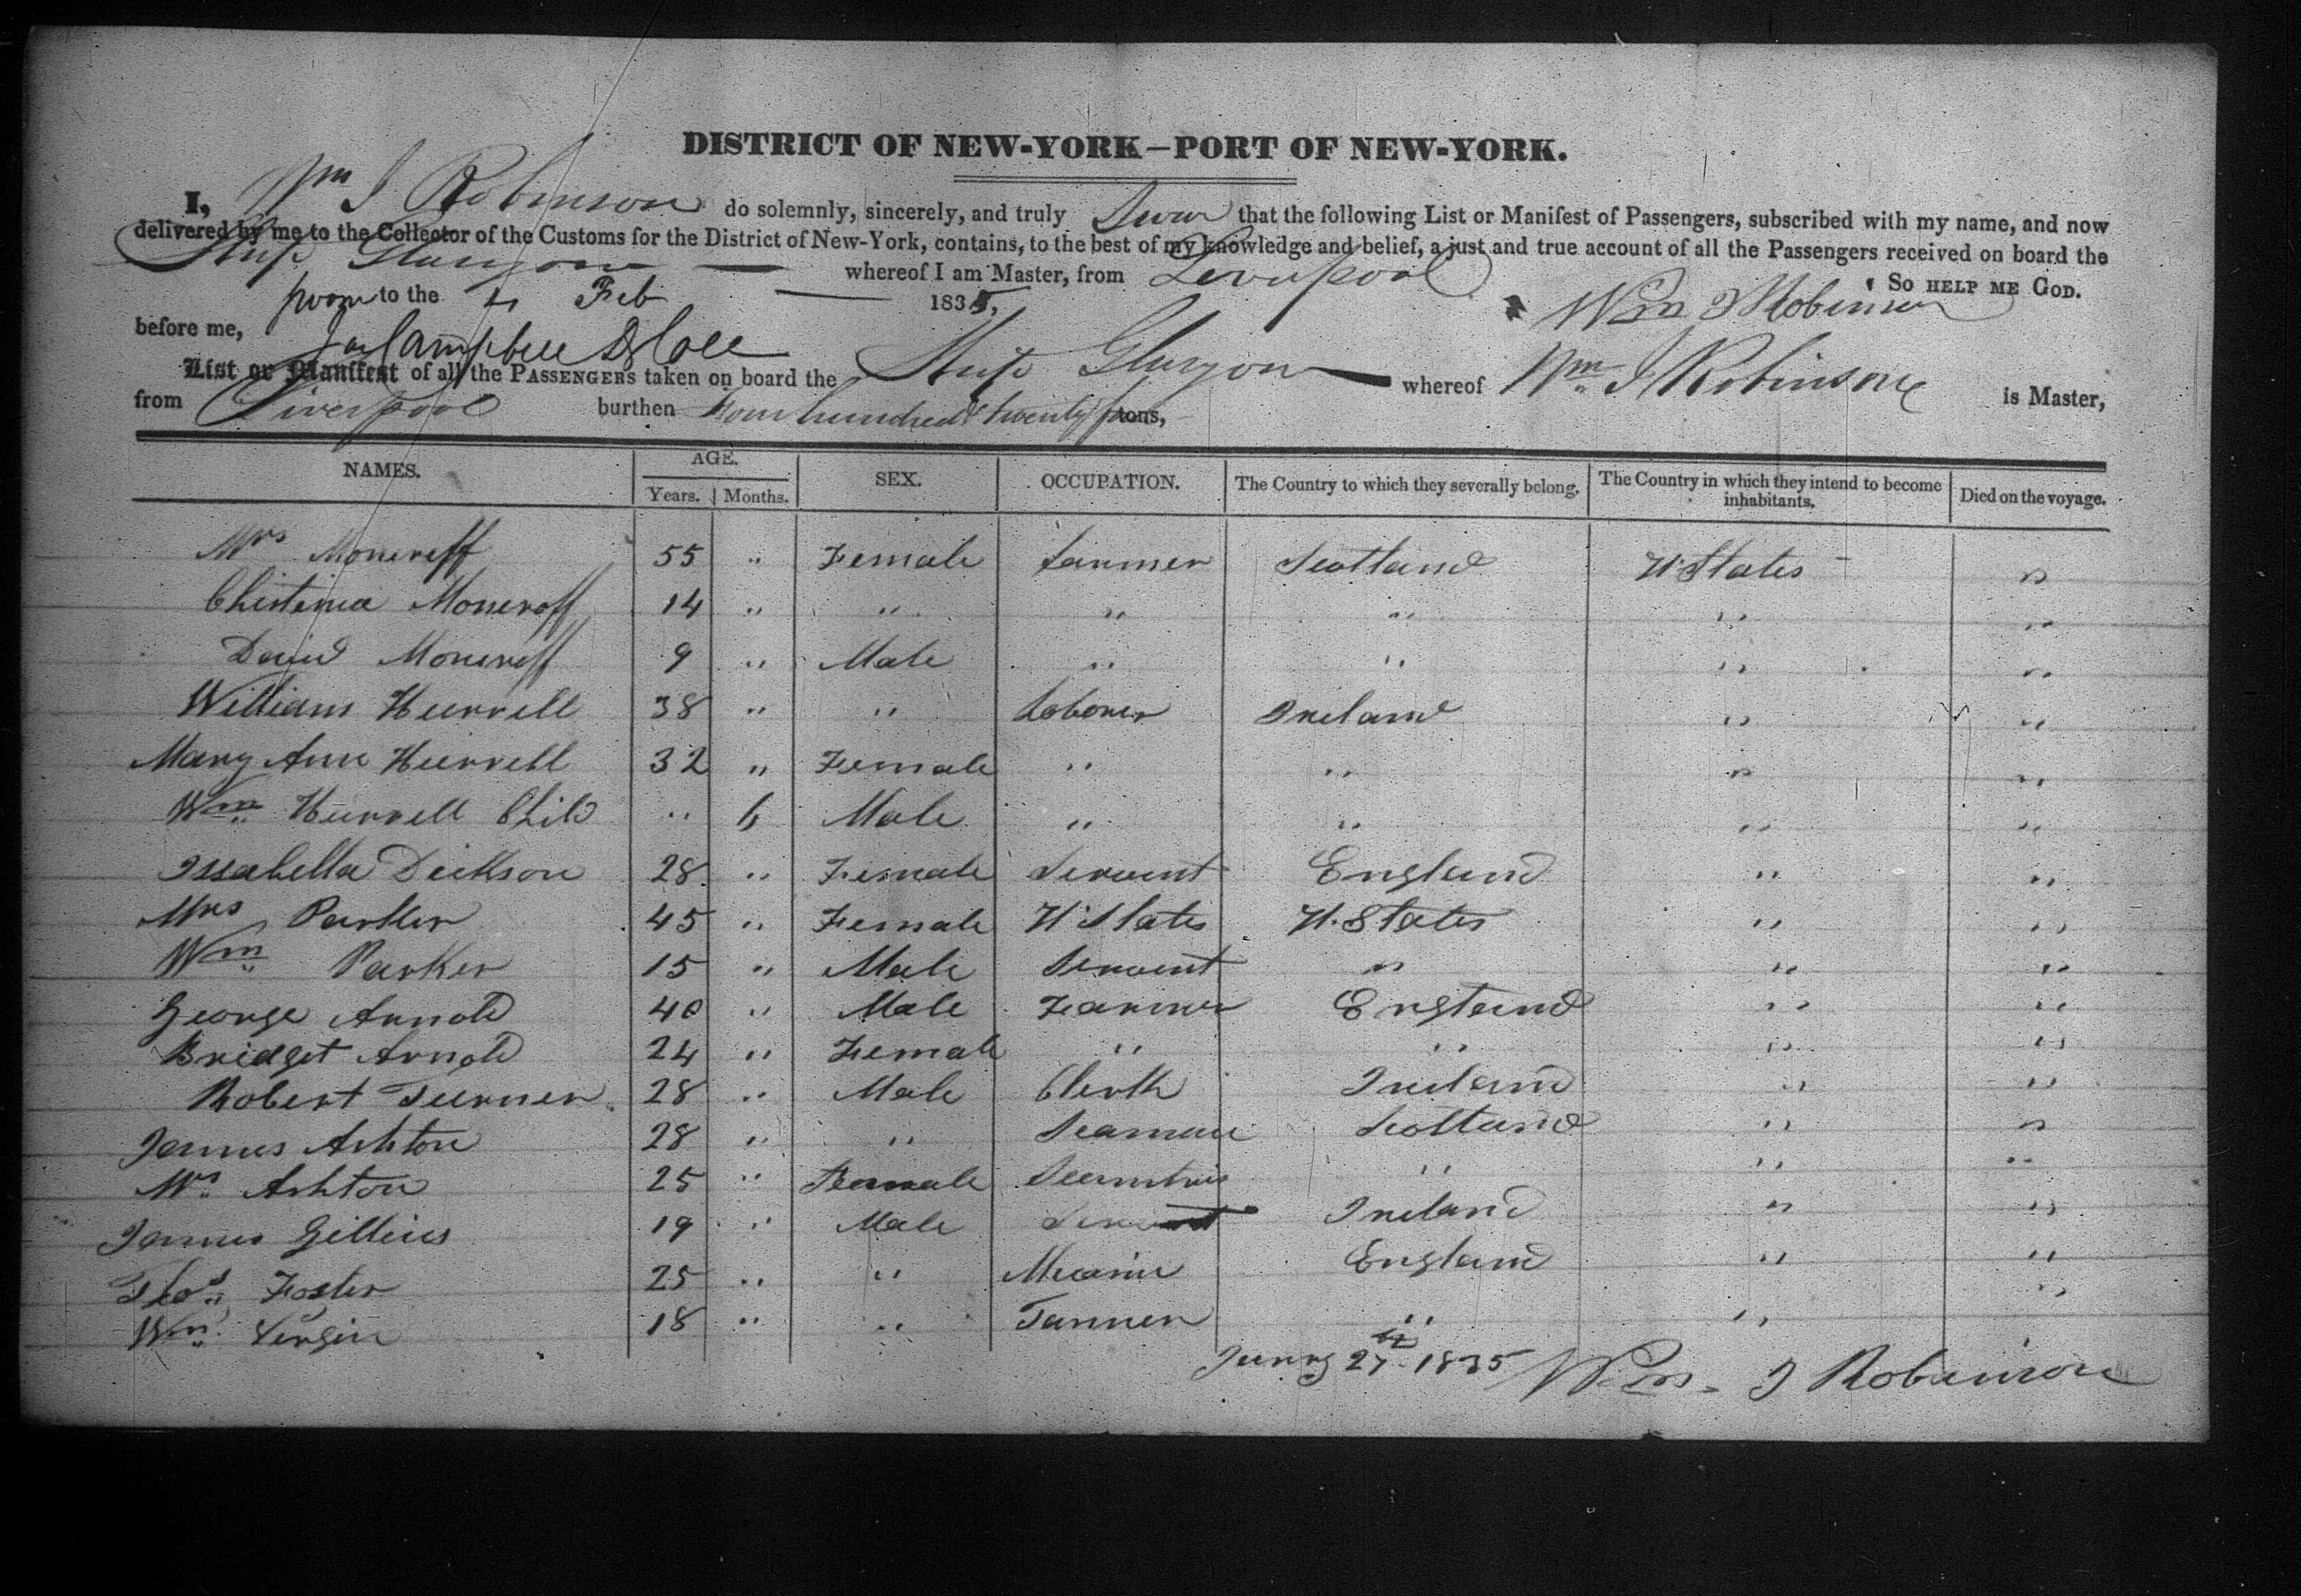 DISTRICT OF NEW-YORK—PORT OF NEW-YORK.
I, Wm J Robinson do solemnly, sincerely, and truly Swear that the following List or Manifest of Passengers, subscribed with my name, and now
delivered by me to the Collector of the Customs for the District of New-York, contains, to the best of my knowledge and belief, a just and true account of all the Passengers received on board the
Ship Glasgow — whereof I am Master, from Liverpool
to the Feb — 1835, So HELP ME GOD.
before me, Wm J Robinson
List or Manifest of all the PASSENGERS taken on board the Ship Glasgow — whereof Wm J Robinson is Master,
from Liverpool burthen Four hundred & twenty tons,
NAMES. AGE. Years. Months. SEX. OCCUPATION. The Country to which they severally belong. The Country in which they intend to become inhabitants. Died on the voyage.
Mrs Moncreff 55 " Female Farmer Scotland U States "
Christina Moncroff 14 " " " " " "
David Moncreff 9 " Male " " " "
William Hurrell 38 " " Laborer Ireland " "
Mary Ann Hurrell 32 " Female " " " "
Wm Hurrell Child " 6 Male " " " "
Issabella Dickson 28 " Female Servant England " "
Mrs Parker 45 " Female U States U. States " "
Wm Parker 15 " Male Servent " " "
George Arnold 40 " Male Farmer England " "
Bridget Arnold 24 " Female " " " "
Robert Turner 28 " Male Clerk Ireland " "
James Ashton 28 " " Seaman Scotland " "
Mrs Ashton 25 " Female " " "
James Gillies 19 " Male Servant Ireland " "
Thos Foster 25 " " England " "
Wm 18 " " Tanner " " "
27 1835 Wm J Robinson